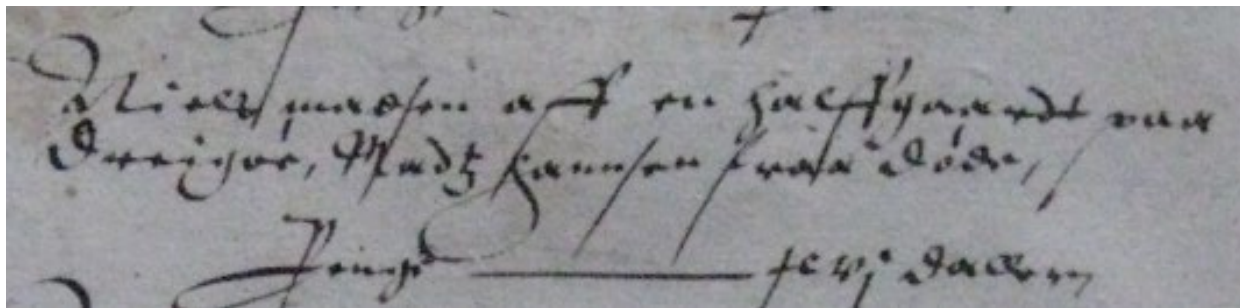 Niels madsen aff en halffgaardt paa
Dreigøe, Madtz hannsen fraa døde,
Penge ——— xlvj daller